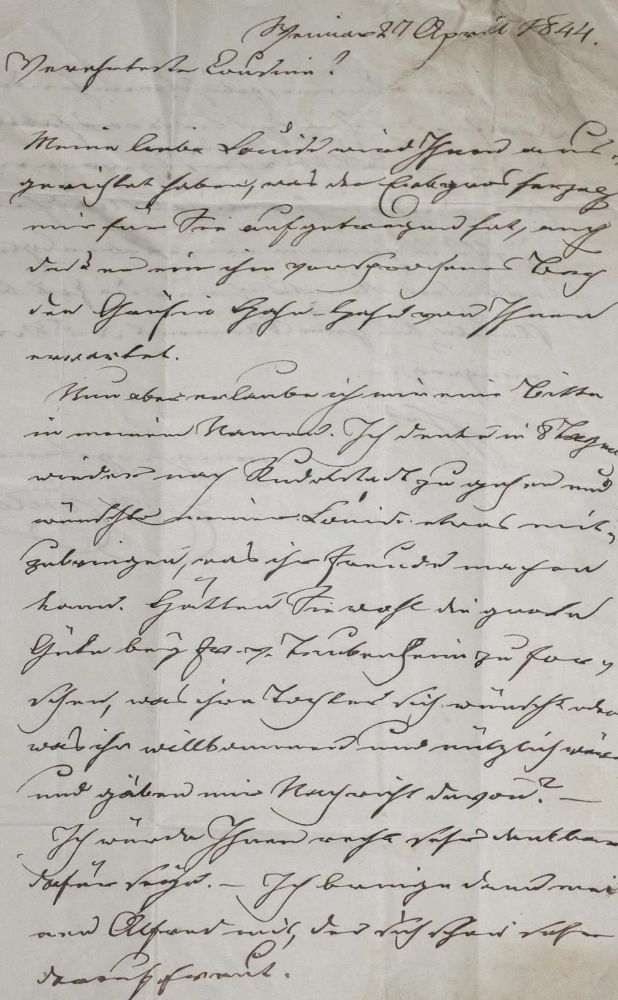 Weimar 27 April 1844.
Verehrteste Cousine!
Meine liebe Louise wird Ihnen aus-
gerichtet haben, was der Erbgrosherzog
mir für Sie aufgetragen hat, auch
daß er ein ihm versprochenes Buch
der Gräfin Hahn-Hahn von Ihnen
erwartet.
Nun aber erlaube ich mir eine Bitte
in meinem Namen. Ich denke in 8 Tagen
wieder nach Rudolstadt zu gehen und
wünschte meiner Louise etwas mit-
zubringen, was ihr Freude machen
kann. Hätten Sie wohl die große
Güte bey Fr. v. Teubern zu for-
schen, was ihre Tochter sich wünscht oder
was ihr willkommen und nützlich wäre
und gäben mir Nachricht davon? –
Ich würde Ihnen recht sehr dankbar
dafür seyn. – Ich bringe dann mei
nen Alfred mit, der sich schon sehr
darauf freut.